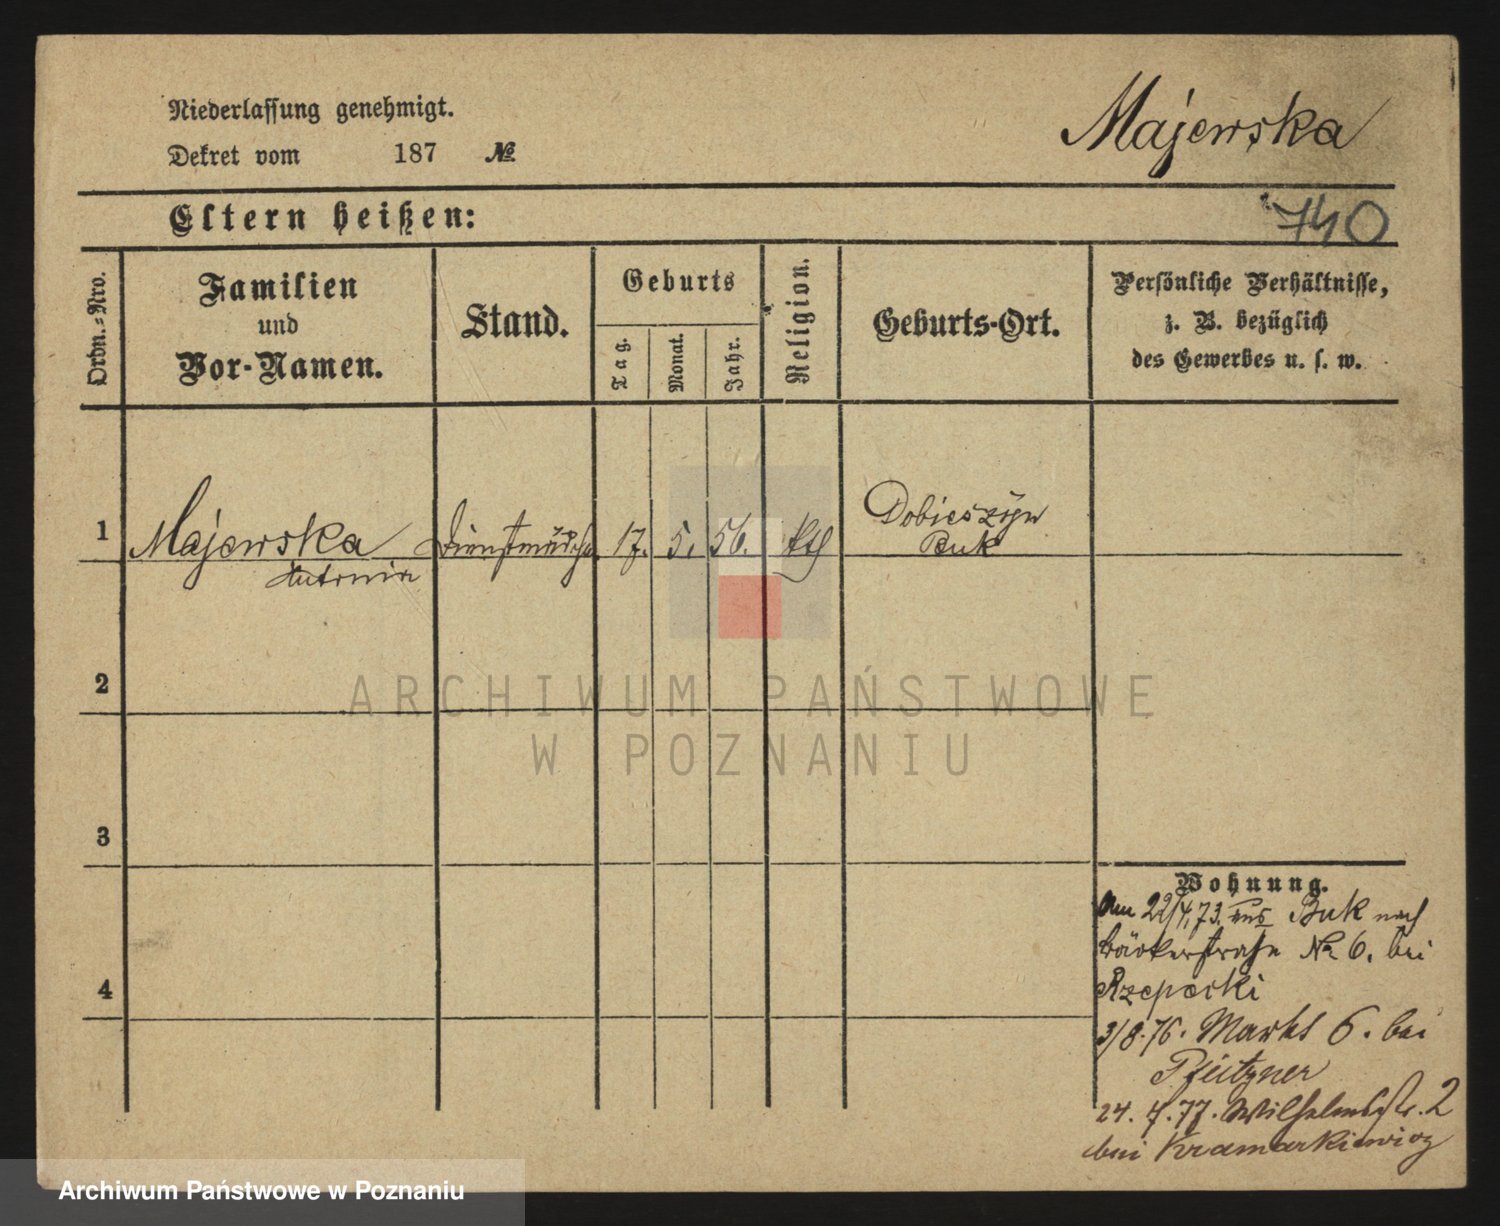 Niederlassung genehmigt.
Majewska
Dekret vom 187 №
Eltern heißen:
740
Ordn.-Nro.
Familien
und
Vor-Namen.
Stand.
Geburts
Tag.
Monat.
Jahr.
Religion.
Geburts-Ort.
Persönliche Verhältnisse,
z. B. bezüglich
des Gewerbes u. s. w.
1
Majewska
Antonie
Dienstmädchen
17.
5.
56.
kth
Dobieszyn
Buk
2
ARCHIWUM PAŃSTWOWE
W POZNANIU
3
Wohnung.
Am 22/4,73. aus Buk nach
Bäckerstraße № 6. bei
Rzepecki
4
3/8.76. Markt 6. bei
Pfeitzner
24. 4.77. Wilhelmsstr. 2
bei Kramarkiewicz
Archiwum Państwowe w Poznaniu